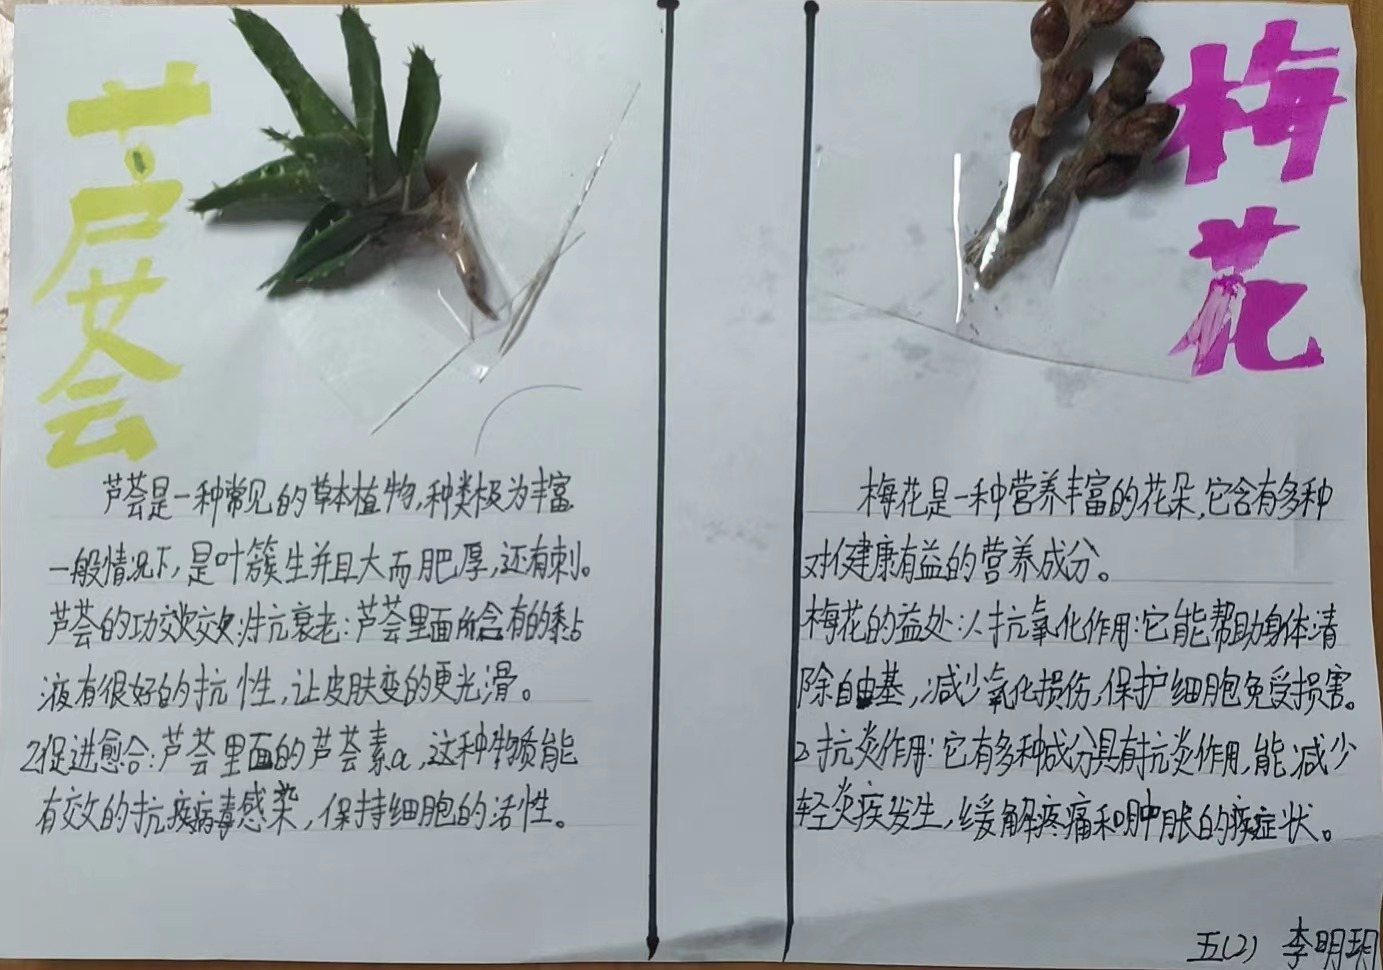 芦荟
芦荟是一种常见的草本植物,种类极为丰富
一般情况下,是叶簇生并且大而肥厚,还有刺。
芦荟的功效:抗衰老:芦荟里面所含有的黏
液有很好的抗性,让皮肤变的更光滑。
2促进愈合:芦荟里面的芦荟素a,这种物质能
有效的抗病毒感染,保持细胞的活性。
梅花
梅花是一种营养丰富的花朵,它含有多种
对健康有益的营养成分。
梅花的益处:1、抗氧化作用:它能帮助身体清
除自由基,减少氧化损伤,保护细胞免受损害。
2抗炎作用:它有多种成分具有抗炎作用,能减少
轻炎疾发生,缓解疼痛和肿胀的症状。
五(2) 李明玥